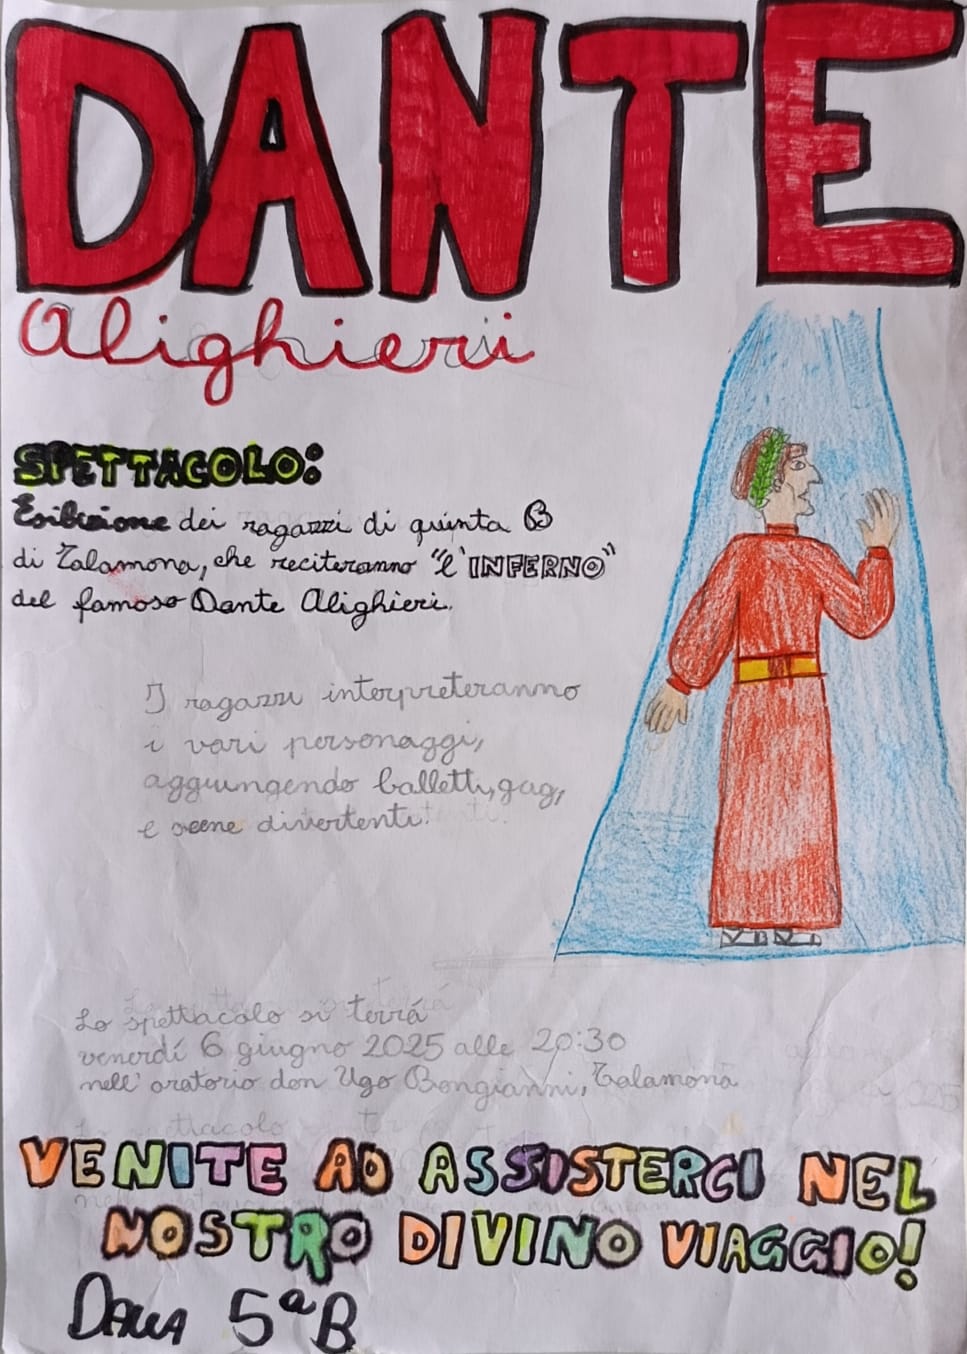 DANTE
Alighieri
SPETTACOLO:
Esibizione dei ragazzi di quinta B
di Talamona, che reciteranno "l'INFERNO"
del famoso Dante Alighieri.
I ragazzi interpreteranno
i vari personaggi,
aggiungendo balletti, gag,
e scene divertenti.
Lo spettacolo si terrá
venerdí 6 giugno 2025 alle 20:30
nell'oratorio don Ugo Bongianni, Talamona
VENITE AD ASSISTERCI NEL
NOSTRO DIVINO VIAGGIO!
DALLA 5ªB